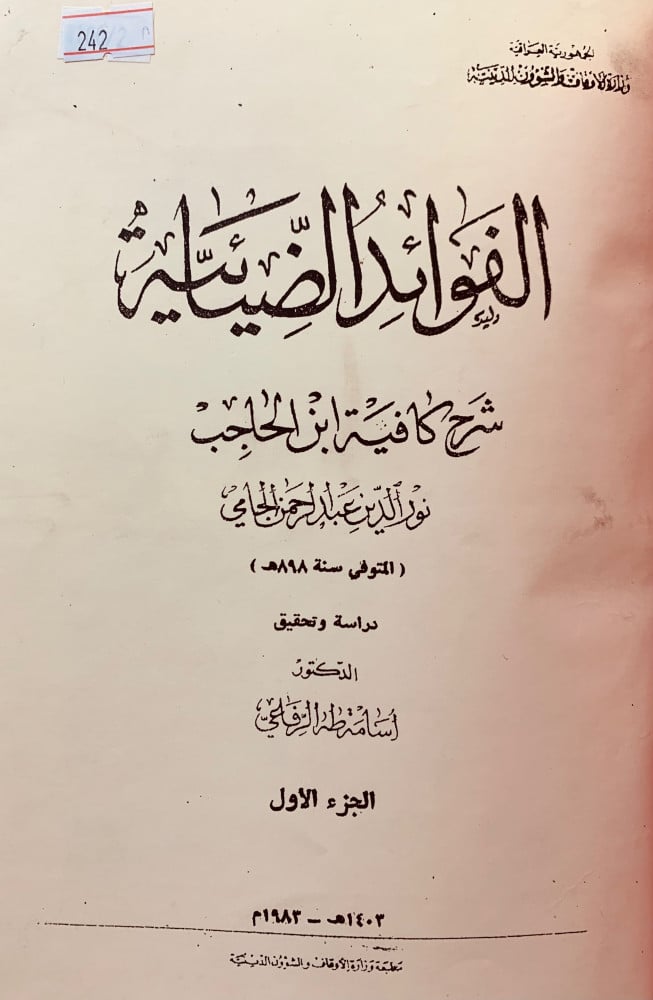 242
الجمهورية العراقية
وزارة الأوقاف والشؤون الدينية
الفَوائِدُ الضِّيائيَّة
وليد
شَرح كافية ابن الحاجِب
نور الدّين عَبد الرحمن الجامي
( المتوفي سنة ٨٩٨هـ )
دراسة وتحقيق
الدكتور
أسامة طه الرفاعيّ
الجزء الأول
١٤٠٣هـ – ١٩٨٣م
مطبعة وزارة الأوقاف والشؤون الدينية